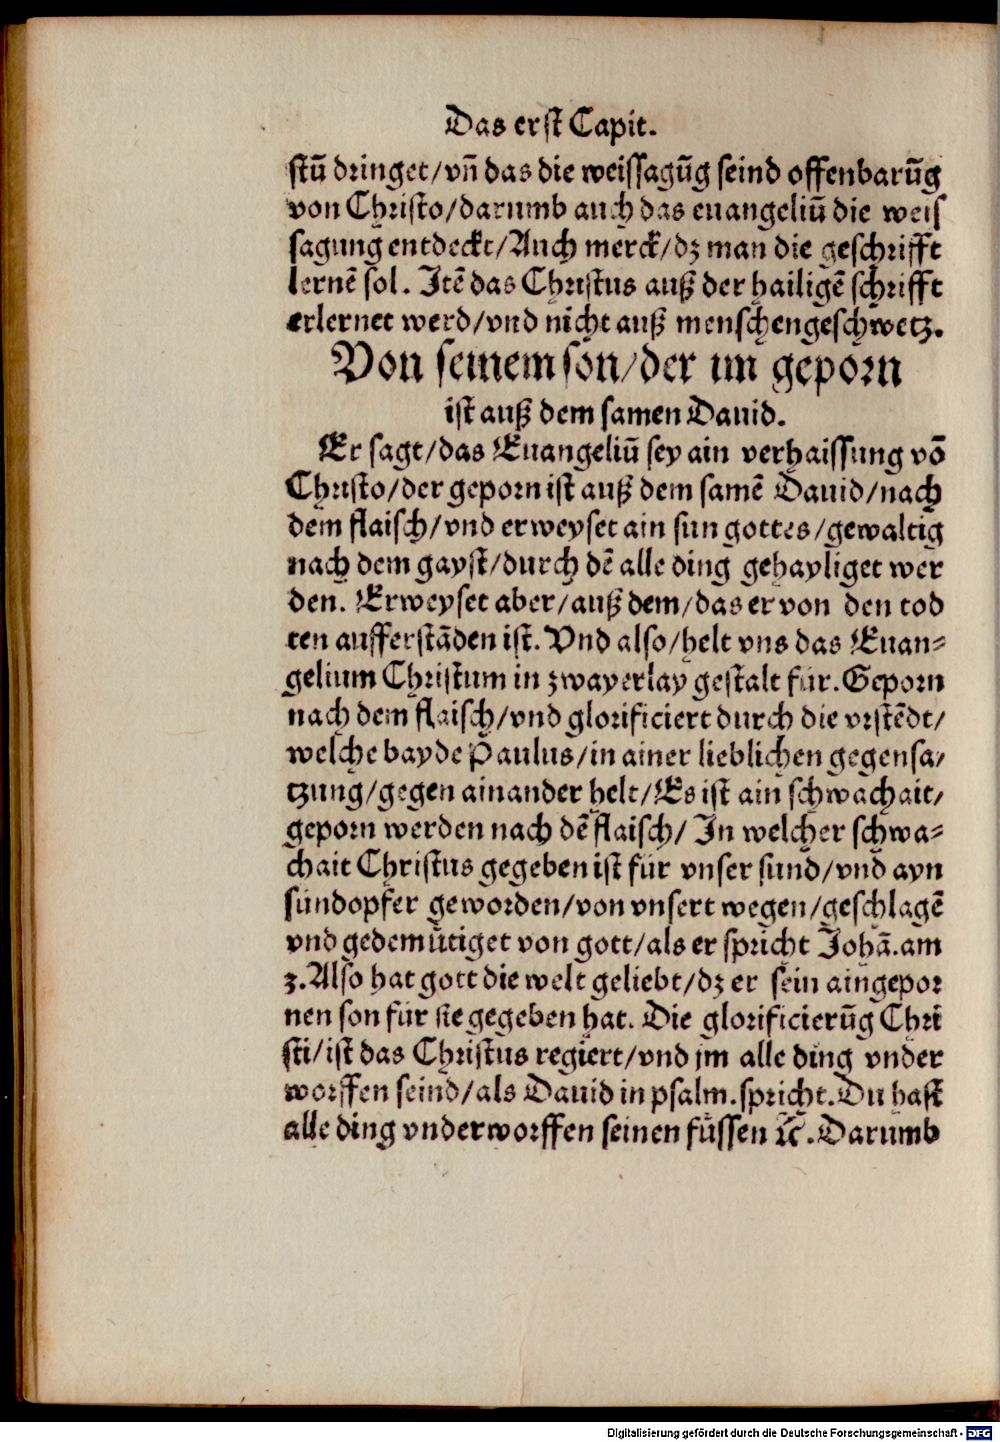 Das erst Capit.
stū dringet/vñ das die weissagūg seind offenbarūg
von Christo/darumb auch das euangeliū die weis
sagung entdeckt/Auch merck/dz man die geschrifft
lernē sol. Itē das Christus auß der hailigē schrifft
erlernet werd/vnd nicht auß menschengeschwetz.
Von seinem son/der im geporn
ist auß dem samen Dauid.
Er sagt/das Euangeliū sey ain verhaissung vō
Christo/der geporn ist auß dem samē Dauid/nach
dem flaisch/vnd erweyset ain sun gottes/gewaltig
nach dem gayst/durch dē alle ding gehayliget wer
den. Erweyset aber/auß dem/das er von den tod
ten aufferstāden ist. Vnd also/helt vns das Euan-
gelium Christum in zwayerlay gestalt für. Geporn
nach dem flaisch/vnd glorificiert durch die vrstēdt/
welche bayde Paulus/in ainer lieblichen gegensa/
tzung/gegen ainander helt/Es ist ain schwachait/
geporn werden nach dē flaisch/ In welcher schwa-
chait Christus gegeben ist für vnser sund/vnd ayn
sündopfer geworden/von vnsert wegen/geschlagē
vnd gedemütiget von gott/als er spricht Johā.am
3.Also hat gott die welt geliebt/dz er sein aingepor
nen son für sie gegeben hat. Die glorificierūg Chri
sti/ist das Christus regiert/vnd jm alle ding vnder
worffen seind/als Dauid in psalm.spricht.Du hast
alle ding vnderworffen seinen füssen ⁊c̄.Darumb
Digitalisierung gefördert durch die Deutsche Forschungsgemeinschaft - DFG